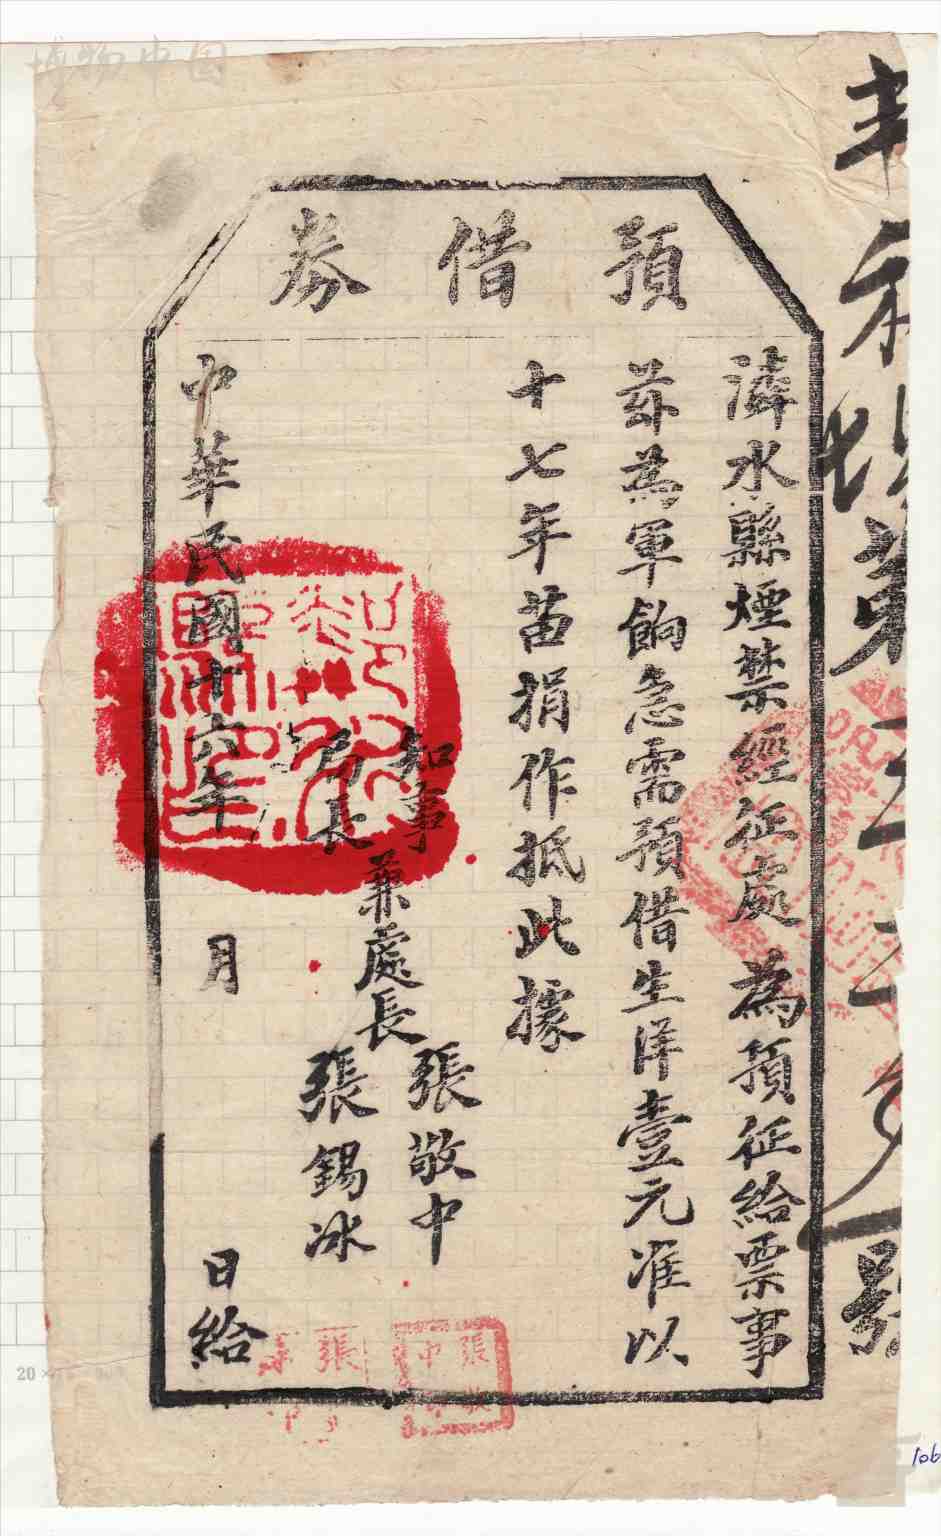 預借券
潾水縣煙禁經征處為預征給票事
茲為軍餉急需預借生洋壹元准以
十七年苗捐作抵此據
知事
局長
兼處長
張敬中
張錫冰
中華民國十六年 月 日給
第
號
博物中国
張敬中
張
20 ×
106